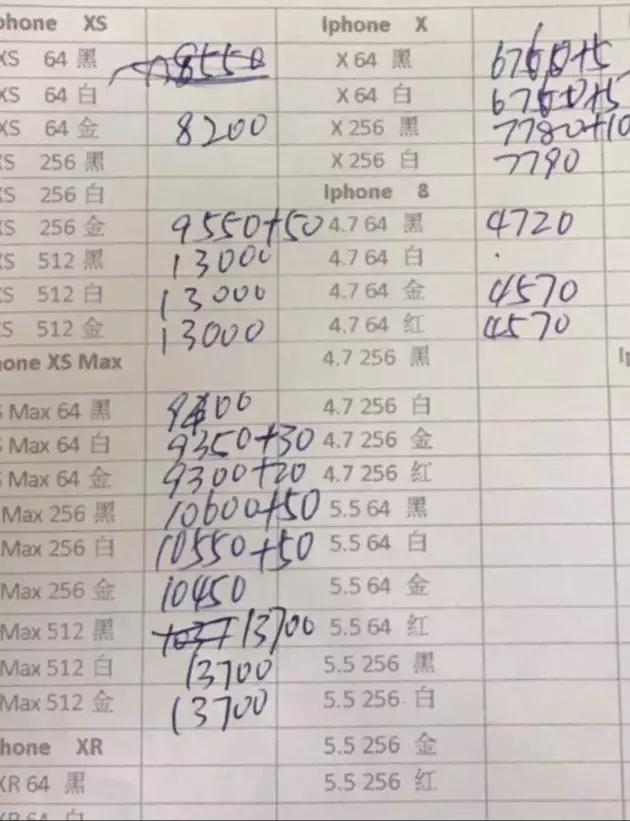 phone XS Iphone X
XS 64 黑 8550 X 64 黑 6760+5
XS 64 白 X 64 白 6760+5
XS 64 金 8200 X 256 黑 7780+10
XS 256 黑 X 256 白 7790
XS 256 白 Iphone 8
XS 256 金 9550+50 4.7 64 黑 4720
XS 512 黑 13000 4.7 64 白
XS 512 白 13000 4.7 64 金 4570
XS 512 金 13000 4.7 64 红 4570
hone XS Max 4.7 256 黑
S Max 64 黑 4.7 256 白
S Max 64 白 9350+30 4.7 256 金
S Max 64 金 9300+20 4.7 256 红
Max 256 黑 10600+50 5.5 64 黑
Max 256 白 10550+50 5.5 64 白
Max 256 金 10450 5.5 64 金
Max 512 黑 13700 5.5 64 红
Max 512 白 13700 5.5 256 黑
Max 512 金 13700 5.5 256 白
hone XR 5.5 256 金
XR 64 黑 5.5 256 红
XR 64 白